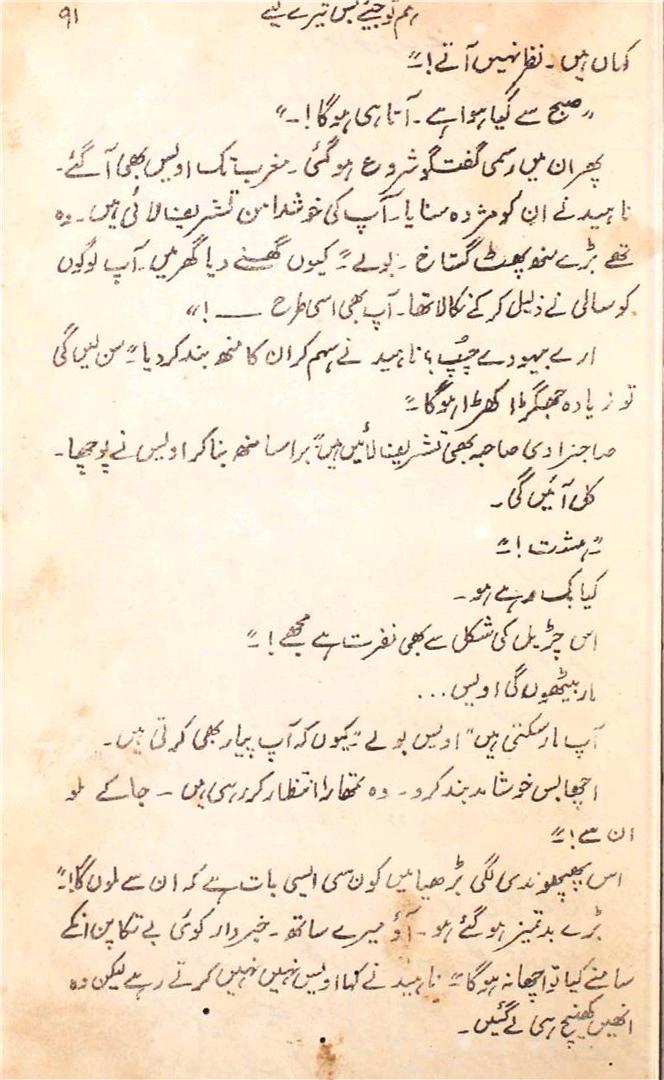 ہم تو جیئے بس تیرے لیے ۹۱
کہاں ہیں۔ نظر نہیں آتے!"
"صبح سے گیا ہوا ہے۔ آتا ہی ہوگا!۔"
پھر ان میں رسمی گفتگو شروع ہوگئی۔ مغرب تک اویس بھی آگئے۔
ناہید نے ان کو مژدہ سنایا۔ آپ کی خوشدامن تشریف لائی ہیں۔ وہ
تھے بڑے منھ پھٹ گستاخ۔ بولے "کیوں گھسنے دیا گھر میں۔ آپ لوگوں
کو سالی نے ذلیل کرکے نکالا تھا۔ آپ بھی اسی طرح ـــــ!"
ارے بیہودے چپُ؛ ناہید نے سہم کر ان کا منھ بند کردیا "سن لیں گی
تو زیادہ جھگڑا کھڑا ہوگا"
صاحبزادی صاحبہ بھی تشریف لائیں ہیں" برا سا منھ بنا کر اویس نے پوچھا۔
کل آئیں گی۔
"ہشت!"
کیا بک رہے ہو۔
اس چڑیل کی شکل سے بھی نفرت ہے مجھے!"
مار بیٹھوں گی اویس...
آپ مار سکتی ہیں" اویس بولے "کیوں کہ آپ پیار بھی کرتی ہیں۔
اچھا بس خوشامد بند کرو۔ وہ تمھارا انتظار کر رہی ہیں۔ جاکے ملو
ان سے!"
اس پھپھوندی لگی بڑھیا میں کون سی ایسی بات ہے کہ ان سے ملوں گا!"
بڑے بدتمیز ہوگئے ہو۔ آؤ میرے ساتھ۔ خبردار کوئی بے تکا پن انکے
سامنے کیا تو اچھا نہ ہوگا" ناہید نے کہا اویس نہیں نہیں کرتے رہے لیکن وہ
انھیں کھینچ ہی لے گئیں۔